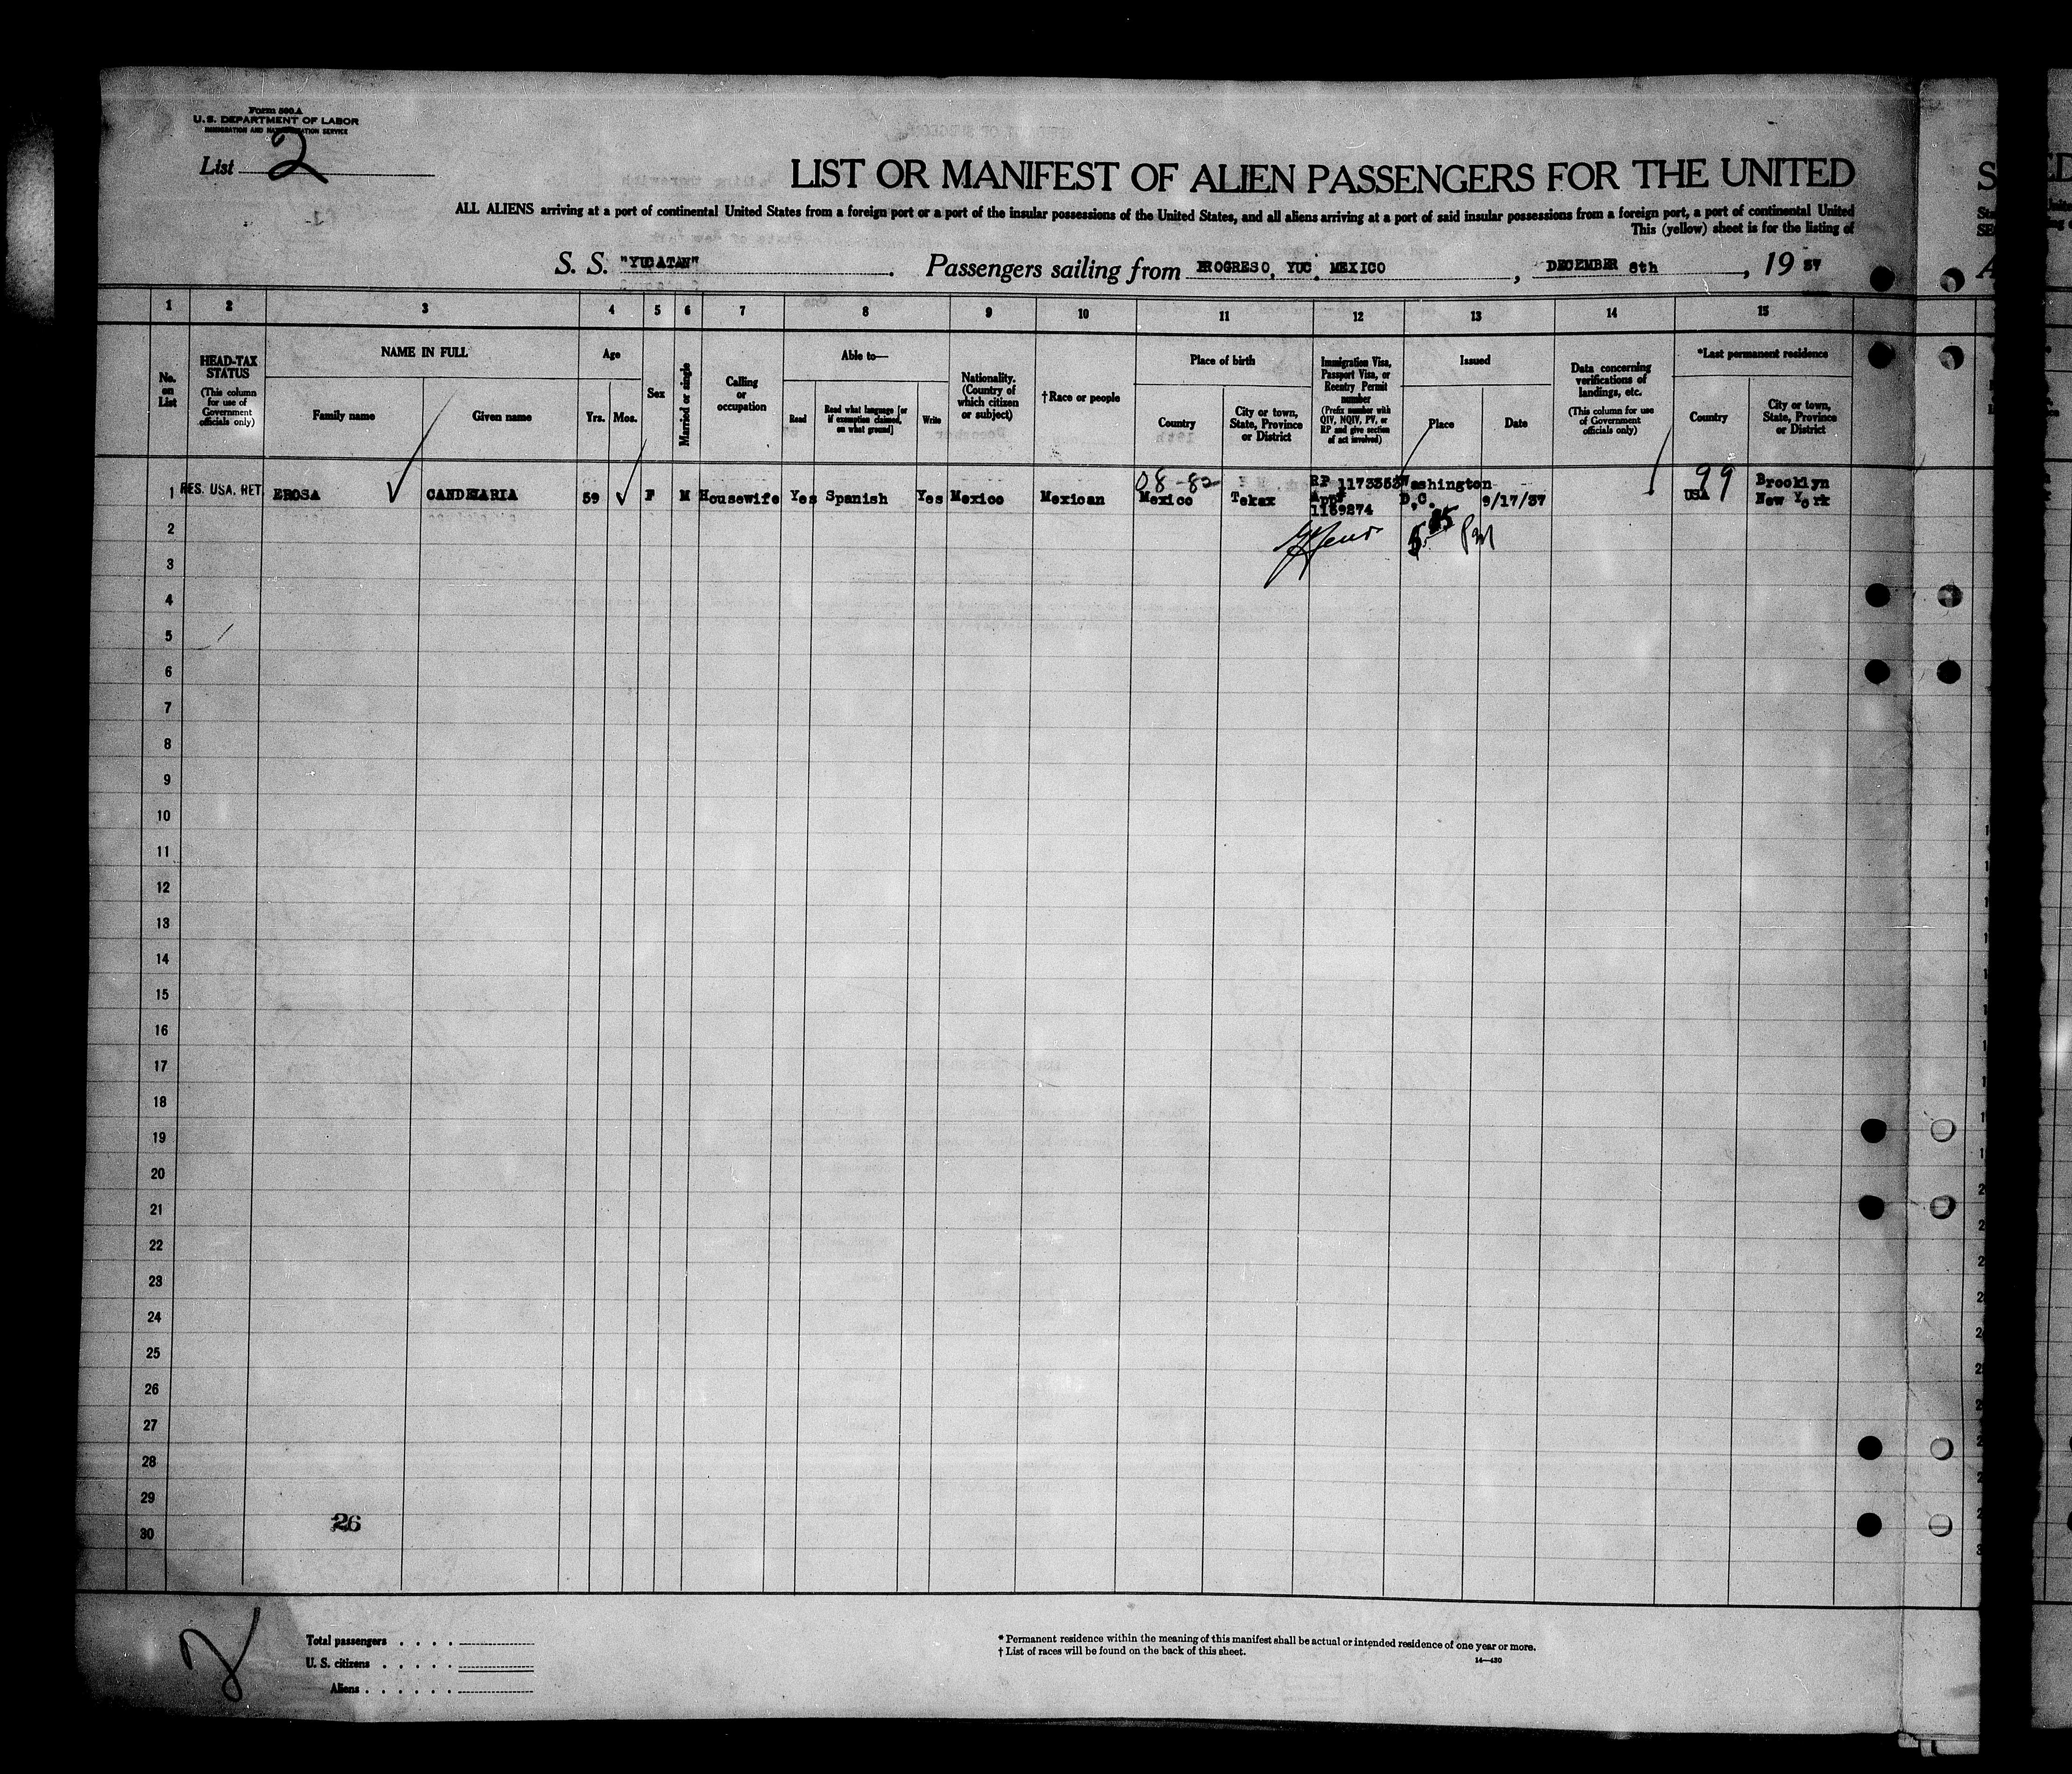 Form 500 A
U. S. DEPARTMENT OF LABOR
IMMIGRATION AND NATURALIZATION SERVICE
List 2
LIST OR MANIFEST OF ALIEN PASSENGERS FOR THE UNITED
ALL ALIENS arriving at a port of continental United States from a foreign port or a port of the insular possessions of the United States, and all aliens arriving at a port of said insular possessions from a foreign port, a port of continental United
This (yellow) sheet is for the listing of
S. S. "YUCATAN". Passengers sailing from PROGRESO, YUC, MEXICO, DECEMBER 8th, 19 37
1 2 3 4 5 6 7 8 9 10 11 12 13 14 15
No. on List
HEAD-TAX STATUS (This column for use of Government officials only)
NAME IN FULL
Family name Given name
Age
Yrs. Mos.
Sex
Married or single
Calling or occupation
Able to—
Read Read what language [or if exemption claimed, on what ground] Write
Nationality. (Country of which citizen or subject)
†Race or people
Place of birth
Country City or town, State, Province or District
Immigration Visa, Passport Visa, or Reentry Permit number (Prefix number with QIV, NQIV, PV, or RP and give section of act involved)
Issued
Place Date
Data concerning verifications of landings, etc. (This column for use of Government officials only)
*Last permanent residence
Country City or town, State, Province or District
08-82 99
1 RES. USA. RET. EROSA CANDELARIA 59 F M Housewife Yes Spanish Yes Mexico Mexican Mexico Tekax RP 1173353 App# 1169274 Washington D.C. 9/17/37 USA Brooklyn New York
2
3
4
5
6
7
8
9
10
11
12
13
14
15
16
17
18
19
20
21
22
23
24
25
26
27
28
29
26
30
2
Total passengers
U. S. citizens
Aliens
* Permanent residence within the meaning of this manifest shall be actual or intended residence of one year or more.
† List of races will be found on the back of this sheet.
14—430